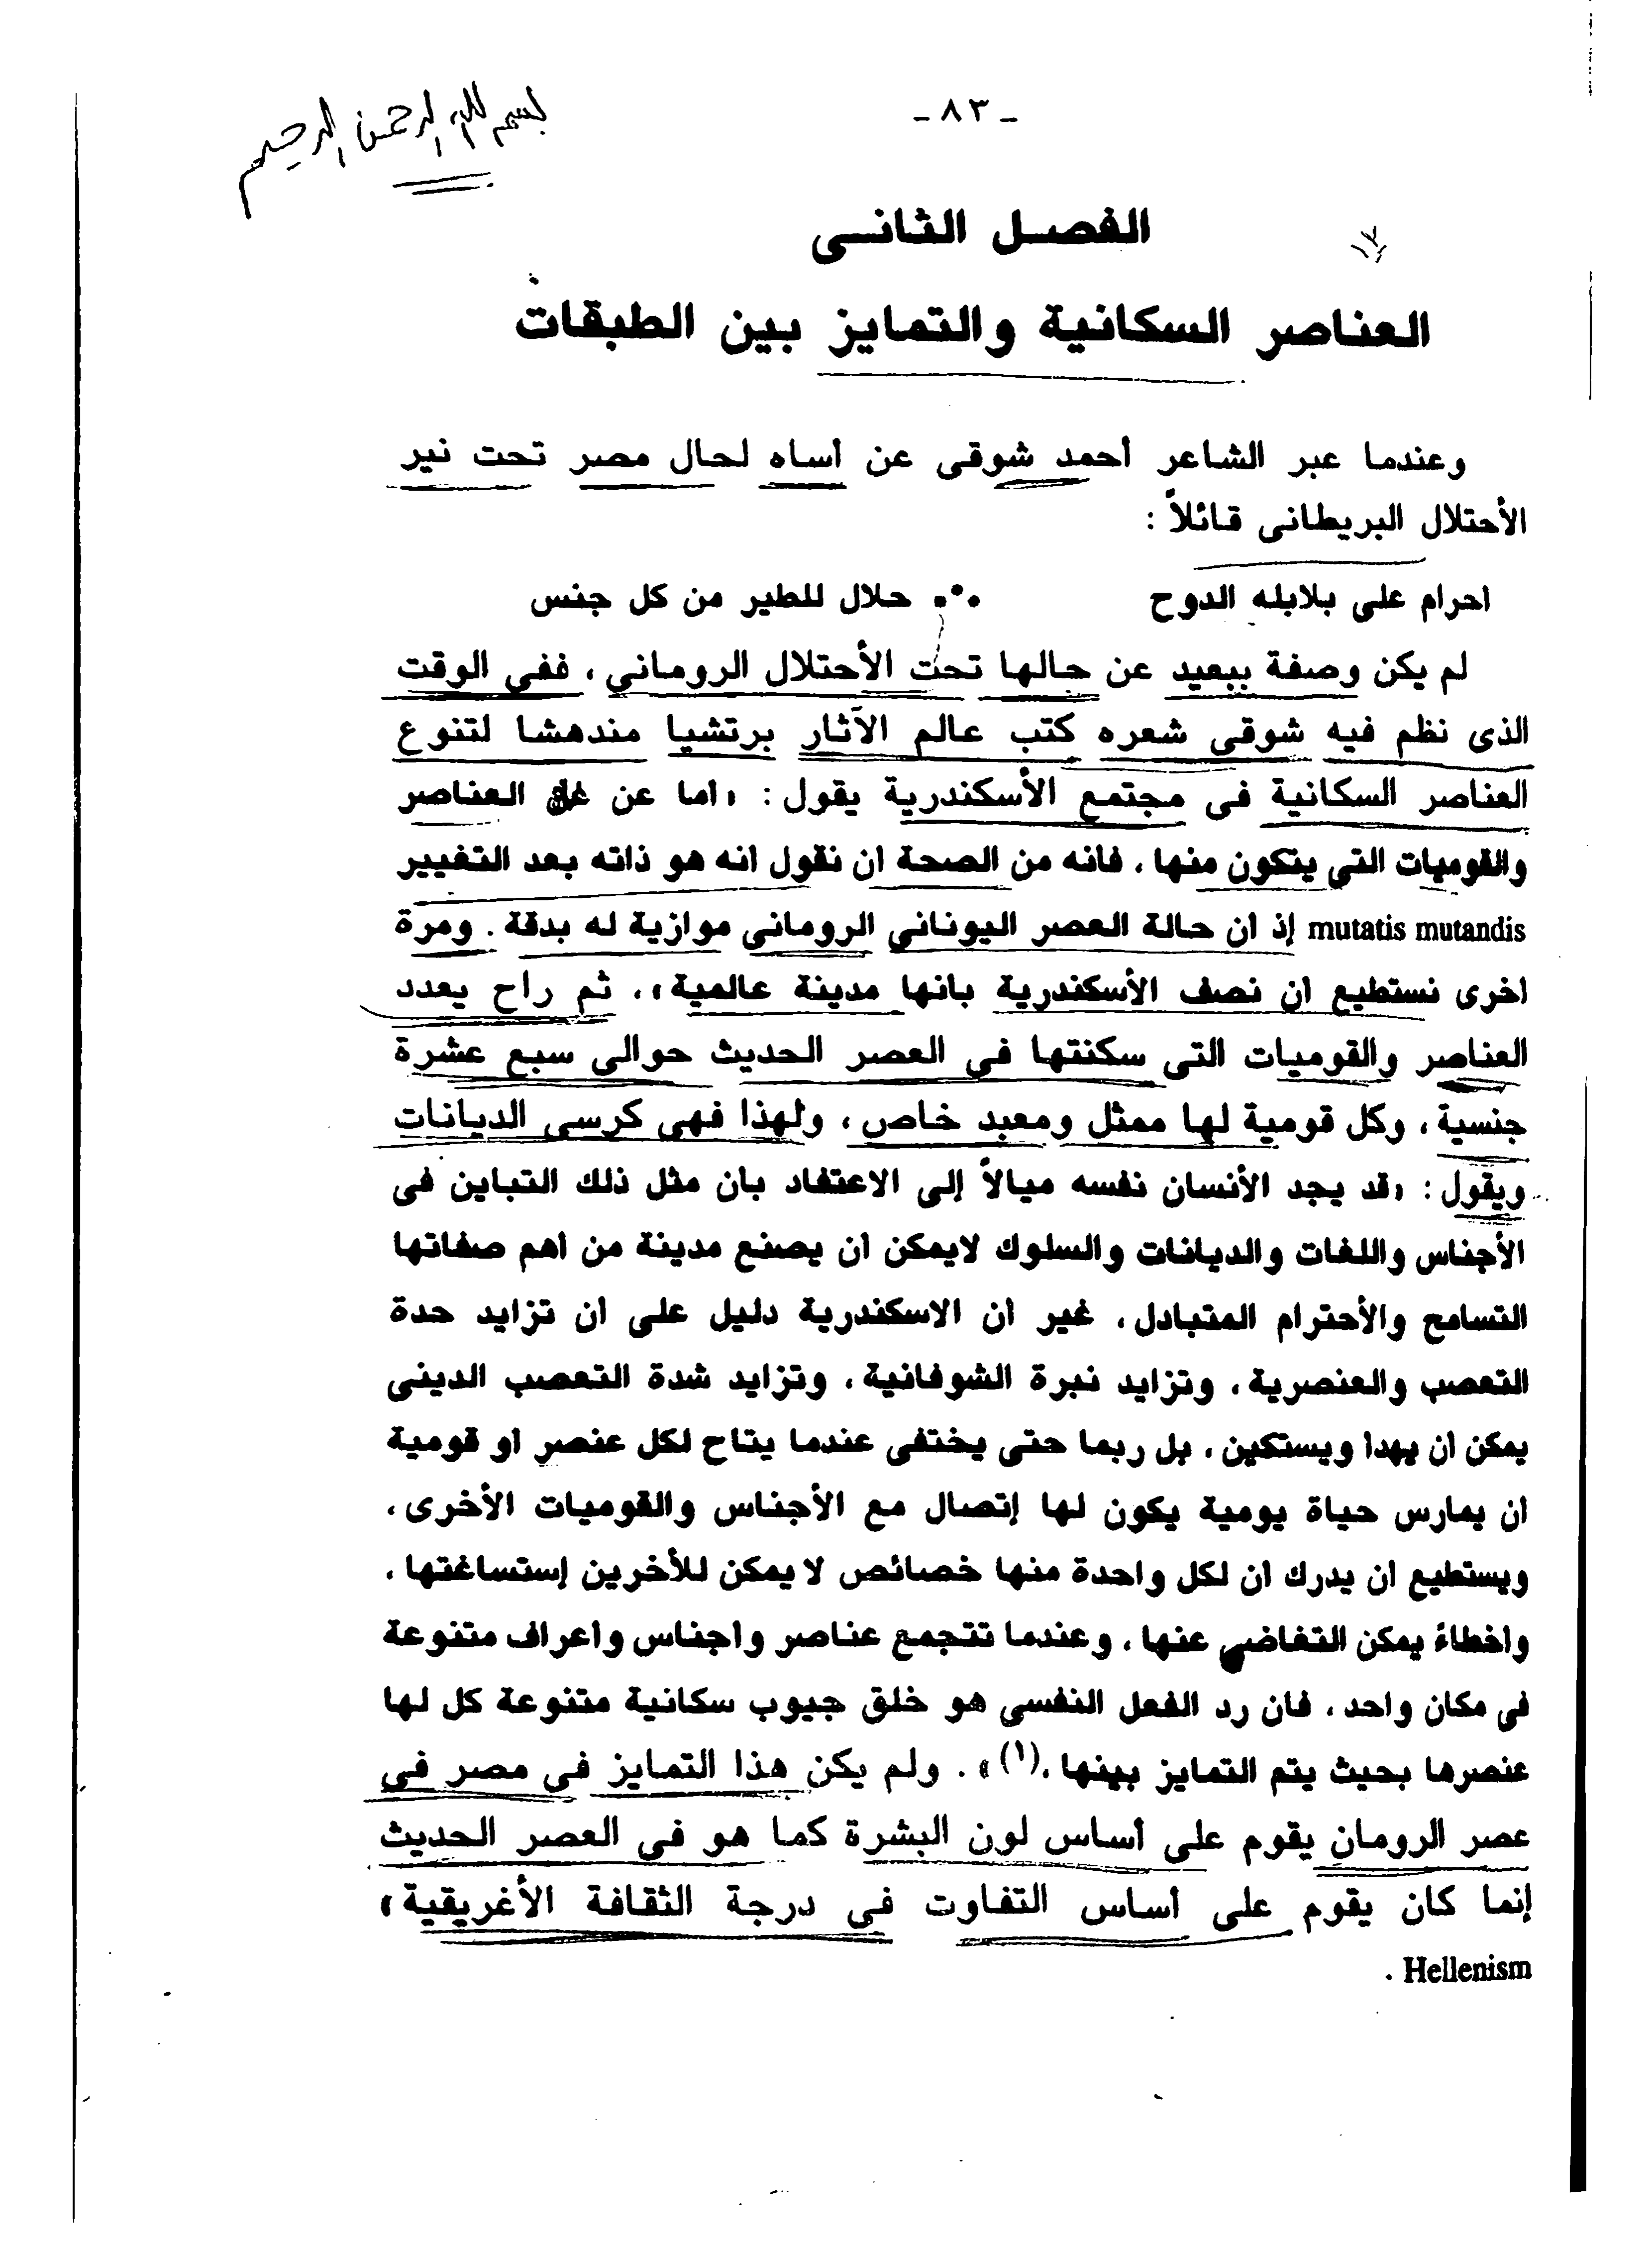 - ٨٣ -
بسم الله الرحمن الرحيم
الفصل الثانى
العناصر السكانية والتمايز بين الطبقات
وعندما عبر الشاعر أحمد شوقى عن أساه لحال مصر تحت نير
الأحتلال البريطانى قائلاً :
احرام على بلابله الدوح ∴ حلال للطير من كل جنس
لم يكن وصفة ببعيد عن حالها تحت الأحتلال الرومانى ، ففى الوقت
الذى نظم فيه شوقى شعره كتب عالم الآثار برتشيا مندهشا لتنوع
العناصر السكانية فى مجتمع الأسكندرية يقول : «أما عن العناصر
والقوميات التى يتكون منها ، فانه من الصحة ان نقول انه هو ذاته بعد التغيير
mutatis mutandis إذ أن حالة العصر اليونانى الرومانى موازية له بدقة . ومرة
اخرى نستطيع ان نصف الأسكندرية بانها مدينة عالمية» ، ثم راح يعدد
العناصر والقوميات التى سكنتها فى العصر الحديث حوالى سبع عشرة
جنسية ، وكل قومية لها ممثل ومعبد خاص ، ولهذا فهى كرسى الديانات
ويقول : «قد يجد الأنسان نفسه ميالاً إلى الاعتقاد بان مثل ذلك التباين فى
الأجناس واللغات والديانات والسلوك لايمكن ان يصنع مدينة من اهم صفاتها
التسامح والأحترام المتبادل ، غير ان الاسكندرية دليل على ان تزايد حدة
التعصب والعنصرية ، وتزايد نبرة الشوفانية ، وتزايد شدة التعصب الدينى
يمكن ان يهدا ويستكين ، بل ربما حتى يختفى عندما يتاح لكل عنصر او قومية
ان يمارس حياة يومية يكون لها إتصال مع الأجناس والقوميات الأخرى ،
ويستطيع ان يدرك ان لكل واحدة منها خصائص لا يمكن للأخرين إستساغتها ،
واخطاءً يمكن التغاضى عنها ، وعندما تتجمع عناصر واجناس واعراف متنوعة
فى مكان واحد ، فان رد الفعل النفسى هو خلق جيوب سكانية متنوعة كل لها
عنصرها بحيث يتم التمايز بينها ،(١)» . ولم يكن هذا التمايز فى مصر فى
عصر الرومان يقوم على أساس لون البشرة كما هو فى العصر الحديث
إنما كان يقوم على أساس التفاوت فى درجة الثقافة الأغريقية »
Hellenism .